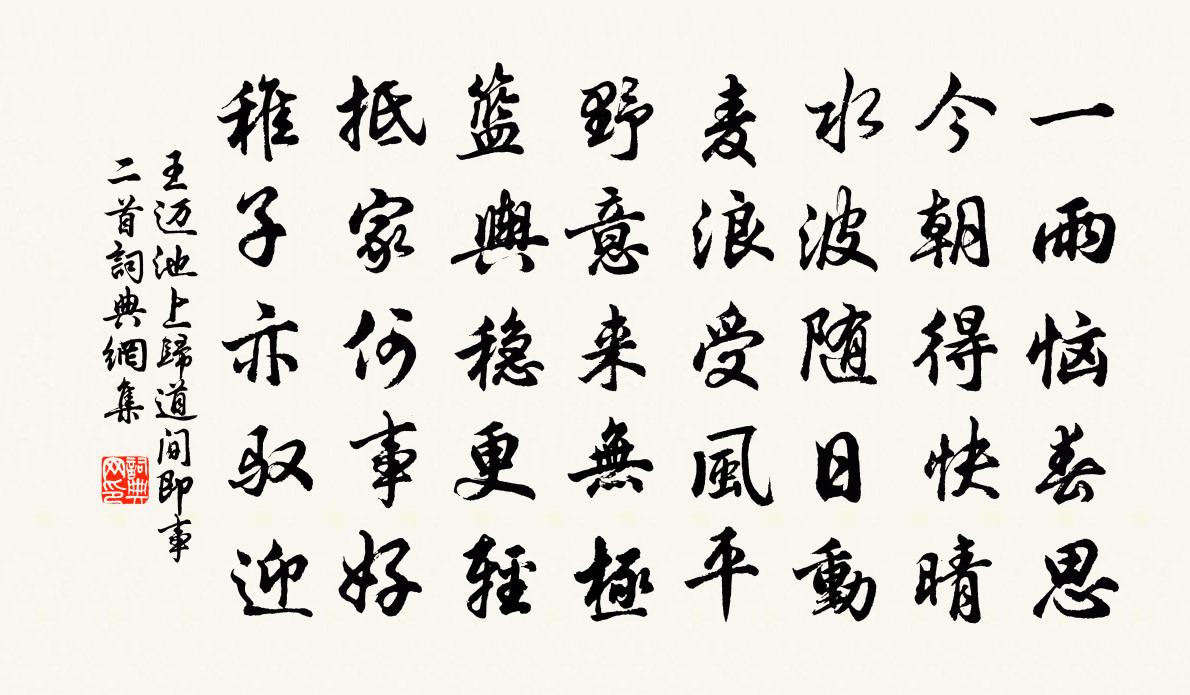 一雨恼春思
今朝得快晴
水波随日動
麦浪受風平
野意来無極
籃輿稳更輕
抵家何事好
稚子亦驭迎
王迈池上歸道间即事
二首詞典網集
詞典网印